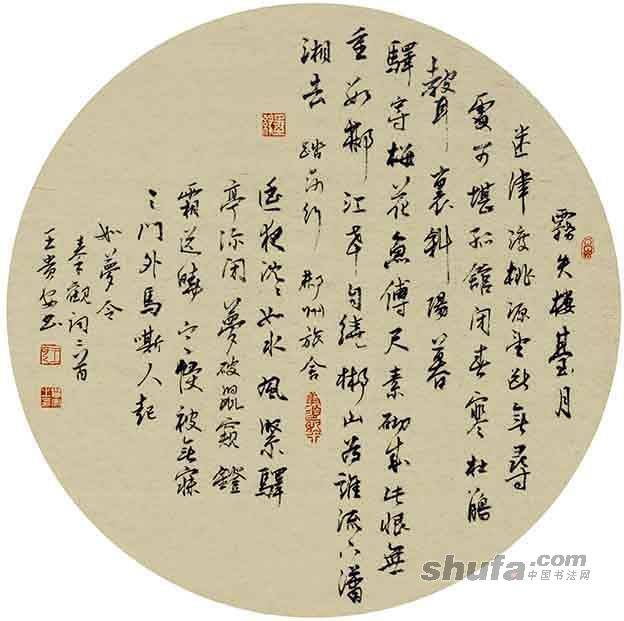 霧失樓臺月
迷津渡桃源望斷無尋
處可堪孤館閉春寒杜鵑
聲裏斜陽暮
驛寄梅花魚傅尺素砌成此恨無
重數郴江幸自繞郴山為誰流下瀟
湘去 踏莎行 郴州旅舍
遙夜沉〻如水風緊驛
亭深閉夢破鼠窺鐙
霜送曉寒侵被無寐
〻〻門外馬嘶人起
如夢令
秦觀詞二首
王貴書
shufa.com
中国书法网